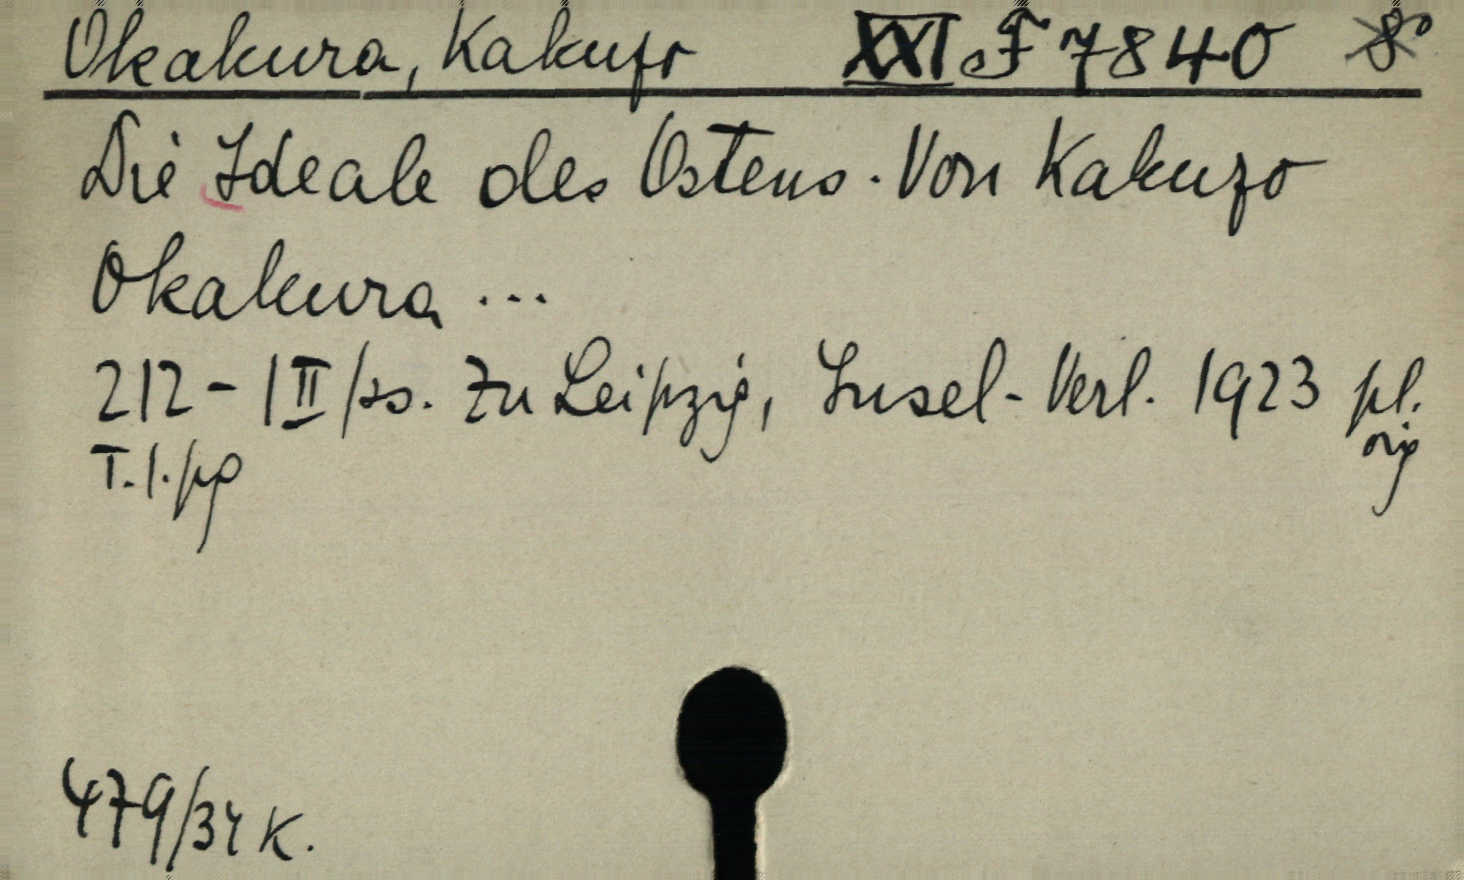 Okakura, Kakuzo XXI F 7840 8°
Die Ideale des Ostens. Von Kakuzo
Okakura ...
212 - 1 II /ss. Zu Leipzig, Insel-Verl. 1923 pl.
orig
T. l. pg
479/34 K.